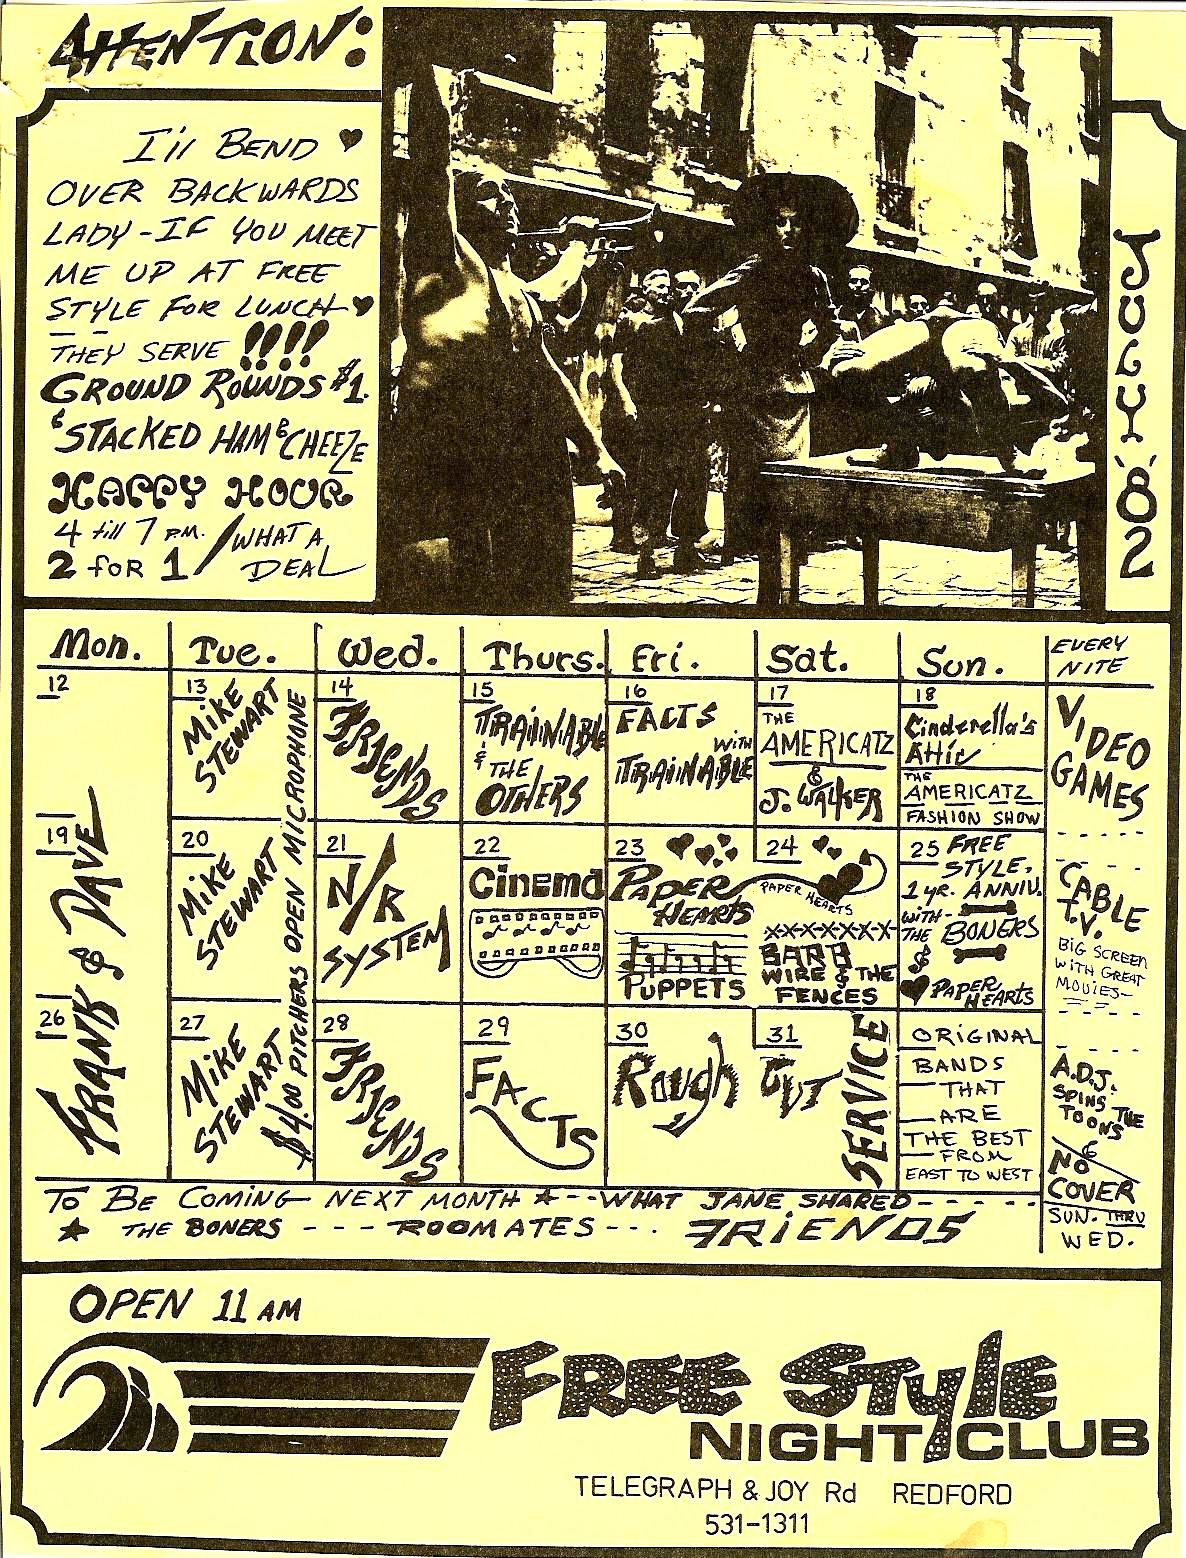 ATTENTION:
I'll BEND ♥
OVER BACKWARDS
LADY-IF YOU MEET
ME UP AT FREE
STYLE FOR LUNCH ♥
THEY SERVE !!!!
GROUND ROUNDS $1.
& STACKED HAM & CHEEZE
HAPPY HOUR
4 till 7 P.M.
2 FOR 1 / WHAT A
DEAL
JULY '82
Mon. Tue. Wed. Thurs. Fri. Sat. Sun. EVERY
NITE
12
13 MIKE
STEWART
14
FRIENDS
15
TRAINABLE
& THE
OTHERS
16
FACTS
WITH
TRAINABLE
17
THE
AMERICATZ
&
J. WALKER
18
Cinderella's
Attic
THE
AMERICATZ
FASHION SHOW
19
20
MIKE
STEWART
21
N/R
SYSTEM
22
Cinema
23
PAPER
HEARTS
PUPPETS
24
PAPER HEARTS
X-X-X-X-X-X-X-
BARB
WIRE & THE
FENCES
25 FREE
STYLE,
1 YR. ANNIV.
WITH-
THE BONERS
&
♥ PAPER
HEARTS
26
FRANK & DAVE
27
MIKE
STEWART
$4.00 PITCHERS OPEN MICROPHONE
28
FRIENDS
29
FACTS
30 31
ROUGH CUT
SERVICE
ORIGINAL
BANDS
THAT
ARE
THE BEST
FROM
EAST TO WEST
VIDEO
GAMES
CABLE
T.V.
BIG SCREEN
WITH GREAT
MOVIES-
A.D.J.
SPINS THE
TOONS
NO
COVER
SUN. THRU
WED.
TO BE COMING NEXT MONTH ★--WHAT JANE SHARED----
★ THE BONERS --- ROOMATES --- FRIENDS
OPEN 11 AM
FREE STYLE
NIGHT CLUB
TELEGRAPH & JOY Rd REDFORD
531-1311